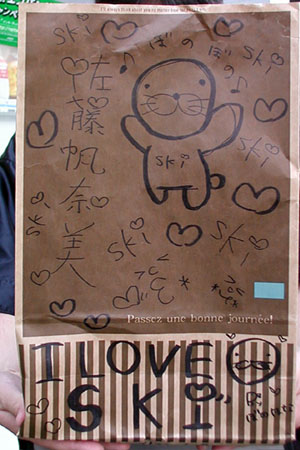 ski
ぼのぼの♪
ski
ski
佐藤帆奈美
ski
ski
ski
ski
Passez une bonne journée!
I LOVE
SKi